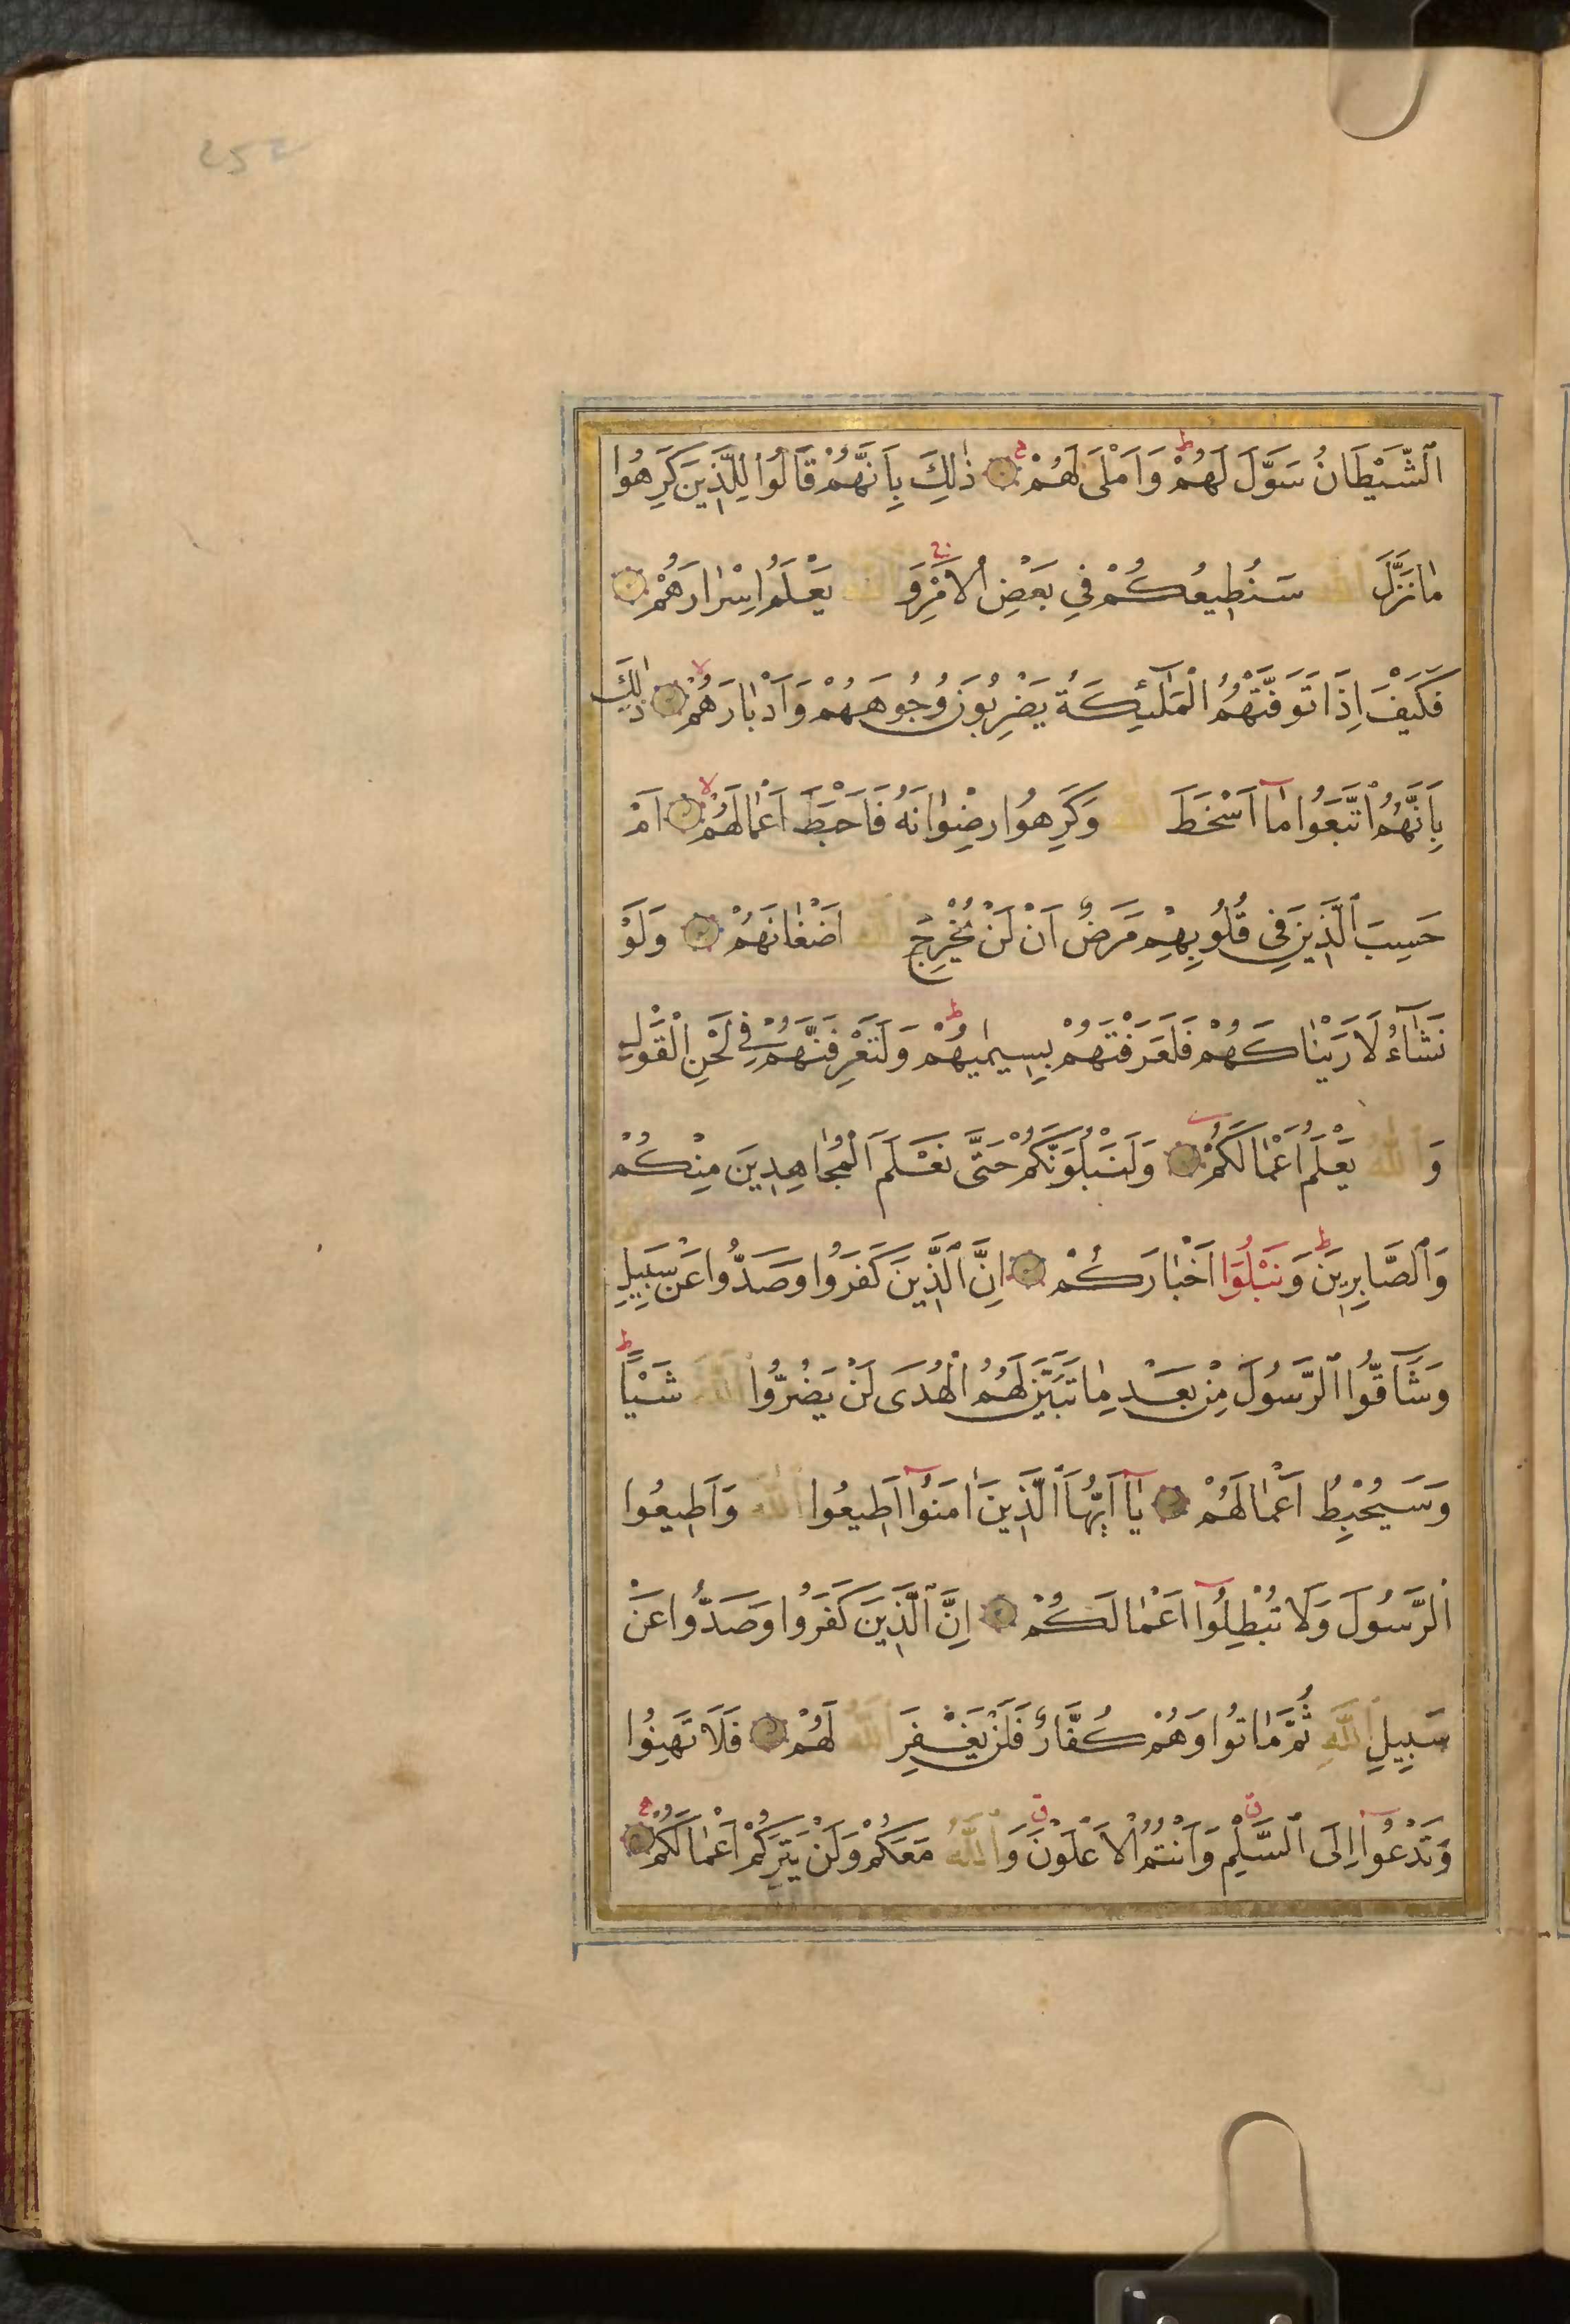 اَلشَّيْطَانُ سَوَّلَ لَهُمْ ط وَاَمْلٰى لَهُمْ ج ذٰلِكَ بِاَنَّهُمْ قَالُوا لِلَّذِينَ كَرِهُوا
مٰا نَزَّلَ اللّٰهُ سَنُطِيعُكُمْ فِي بَعْضِ الْاَمْرِ وَاللّٰهُ يَعْلَمُ اِسْرٰارَهُمْ
فَكَيْفَ اِذَا تَوَفَّتْهُمُ الْمَلٰٓئِكَةُ يَضْرِبُونَ وُجُوهَهُمْ وَاَدْبٰارَهُمْ لا ذٰلِكَ
بِاَنَّهُمُ اتَّبَعُوا مٰٓا اَسْخَطَ اللّٰهَ وَكَرِهُوا رِضْوٰانَهُ فَاَحْبَطَ اَعْمٰالَهُمْ لا اَمْ
حَسِبَ الَّذِينَ فِي قُلُوبِهِمْ مَرَضٌ اَنْ لَنْ يُخْرِجَ اللّٰهُ اَضْغٰانَهُمْ وَلَوْ
نَشٰٓاءُ لَاَرَيْنٰاكَهُمْ فَلَعَرَفْتَهُمْ بِسِيمٰيهُمْ ط وَلَتَعْرِفَنَّهُمْ فِي لَحْنِ الْقَوْلِ
وَاللّٰهُ يَعْلَمُ اَعْمٰالَكُمْ وَلَنَبْلُوَنَّكُمْ حَتَّى نَعْلَمَ الْمُجٰاهِدِينَ مِنْكُمْ
وَالصَّابِرِينَ ط وَنَبْلُوَا اَخْبٰارَكُمْ اِنَّ الَّذِينَ كَفَرُوا وَصَدُّوا عَنْ سَبِيلِ
وَشَآقُّوا الرَّسُولَ مِنْ بَعْدِ مٰا تَبَيَّنَ لَهُمُ الْهُدَى لَنْ يَضُرُّوا اللّٰهَ شَيْئًا ط
وَسَيُحْبِطُ اَعْمٰالَهُمْ يٰٓا اَيُّهَا الَّذِينَ اٰمَنُوٓا اَطِيعُوا اللّٰهَ وَاَطِيعُوا
الرَّسُولَ وَلَا تُبْطِلُوٓا اَعْمٰالَكُمْ اِنَّ الَّذِينَ كَفَرُوا وَصَدُّوا عَنْ
سَبِيلِ اللّٰهِ ثُمَّ مٰاتُوا وَهُمْ كُفَّارٌ فَلَنْ يَغْفِرَ اللّٰهُ لَهُمْ فَلَا تَهِنُوا
وَتَدْعُوٓا اِلَى السَّلْمِ ق وَاَنْتُمُ الْاَعْلَوْنَ ق وَاللّٰهُ مَعَكُمْ وَلَنْ يَتِرَكُمْ اَعْمٰالَكُمْ